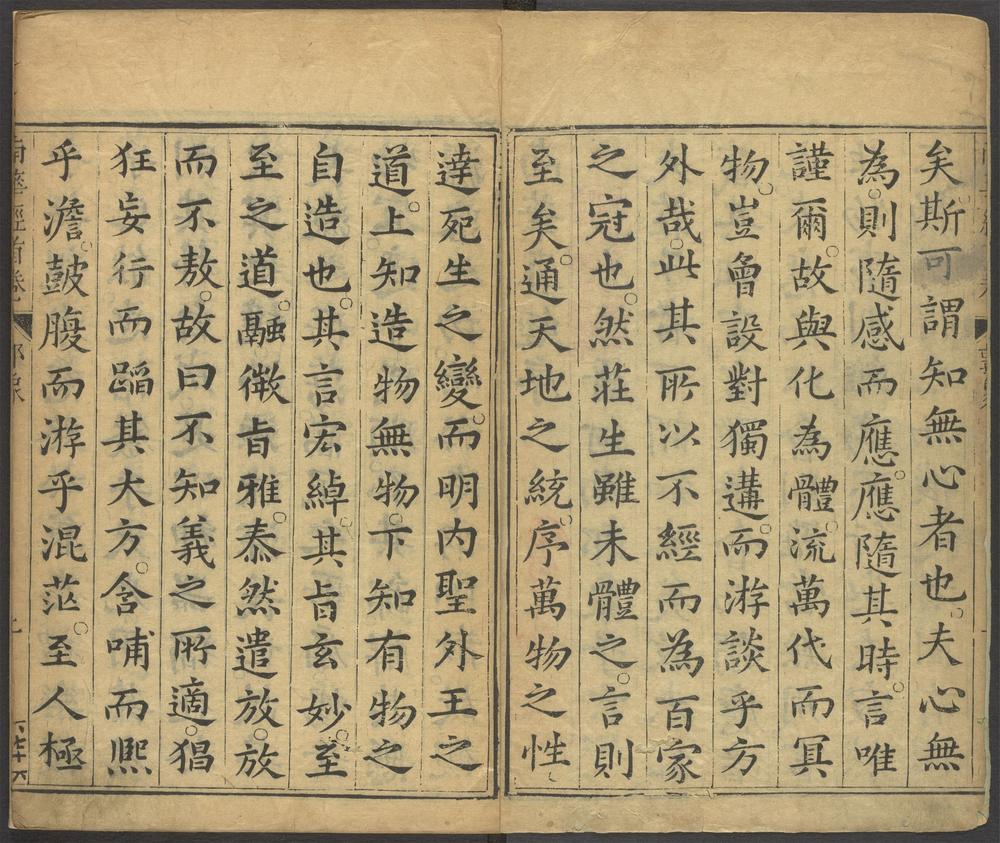 矣斯可謂知無心者也。夫心無
為。則隨感而應。應隨其時。言唯
謹爾。故與化為體。流萬代而冥
物。豈曾設對獨遘。而游談乎方
外哉。此其所以不經而為百家
之冠也。然莊生雖未體之。言則
至矣。通天地之統。序萬物之性
達死生之變。而明内聖外王之
道。上知造物無物。下知有物之
自造也。其言宏綽。其旨玄妙。至
至之道。融微旨雅。泰然遣放。放
而不敖。故曰不知義之所適。猖
狂妄行而蹈其大方。含哺而熈
乎澹。鼓腹而游乎混茫。至人極
南華經首卷